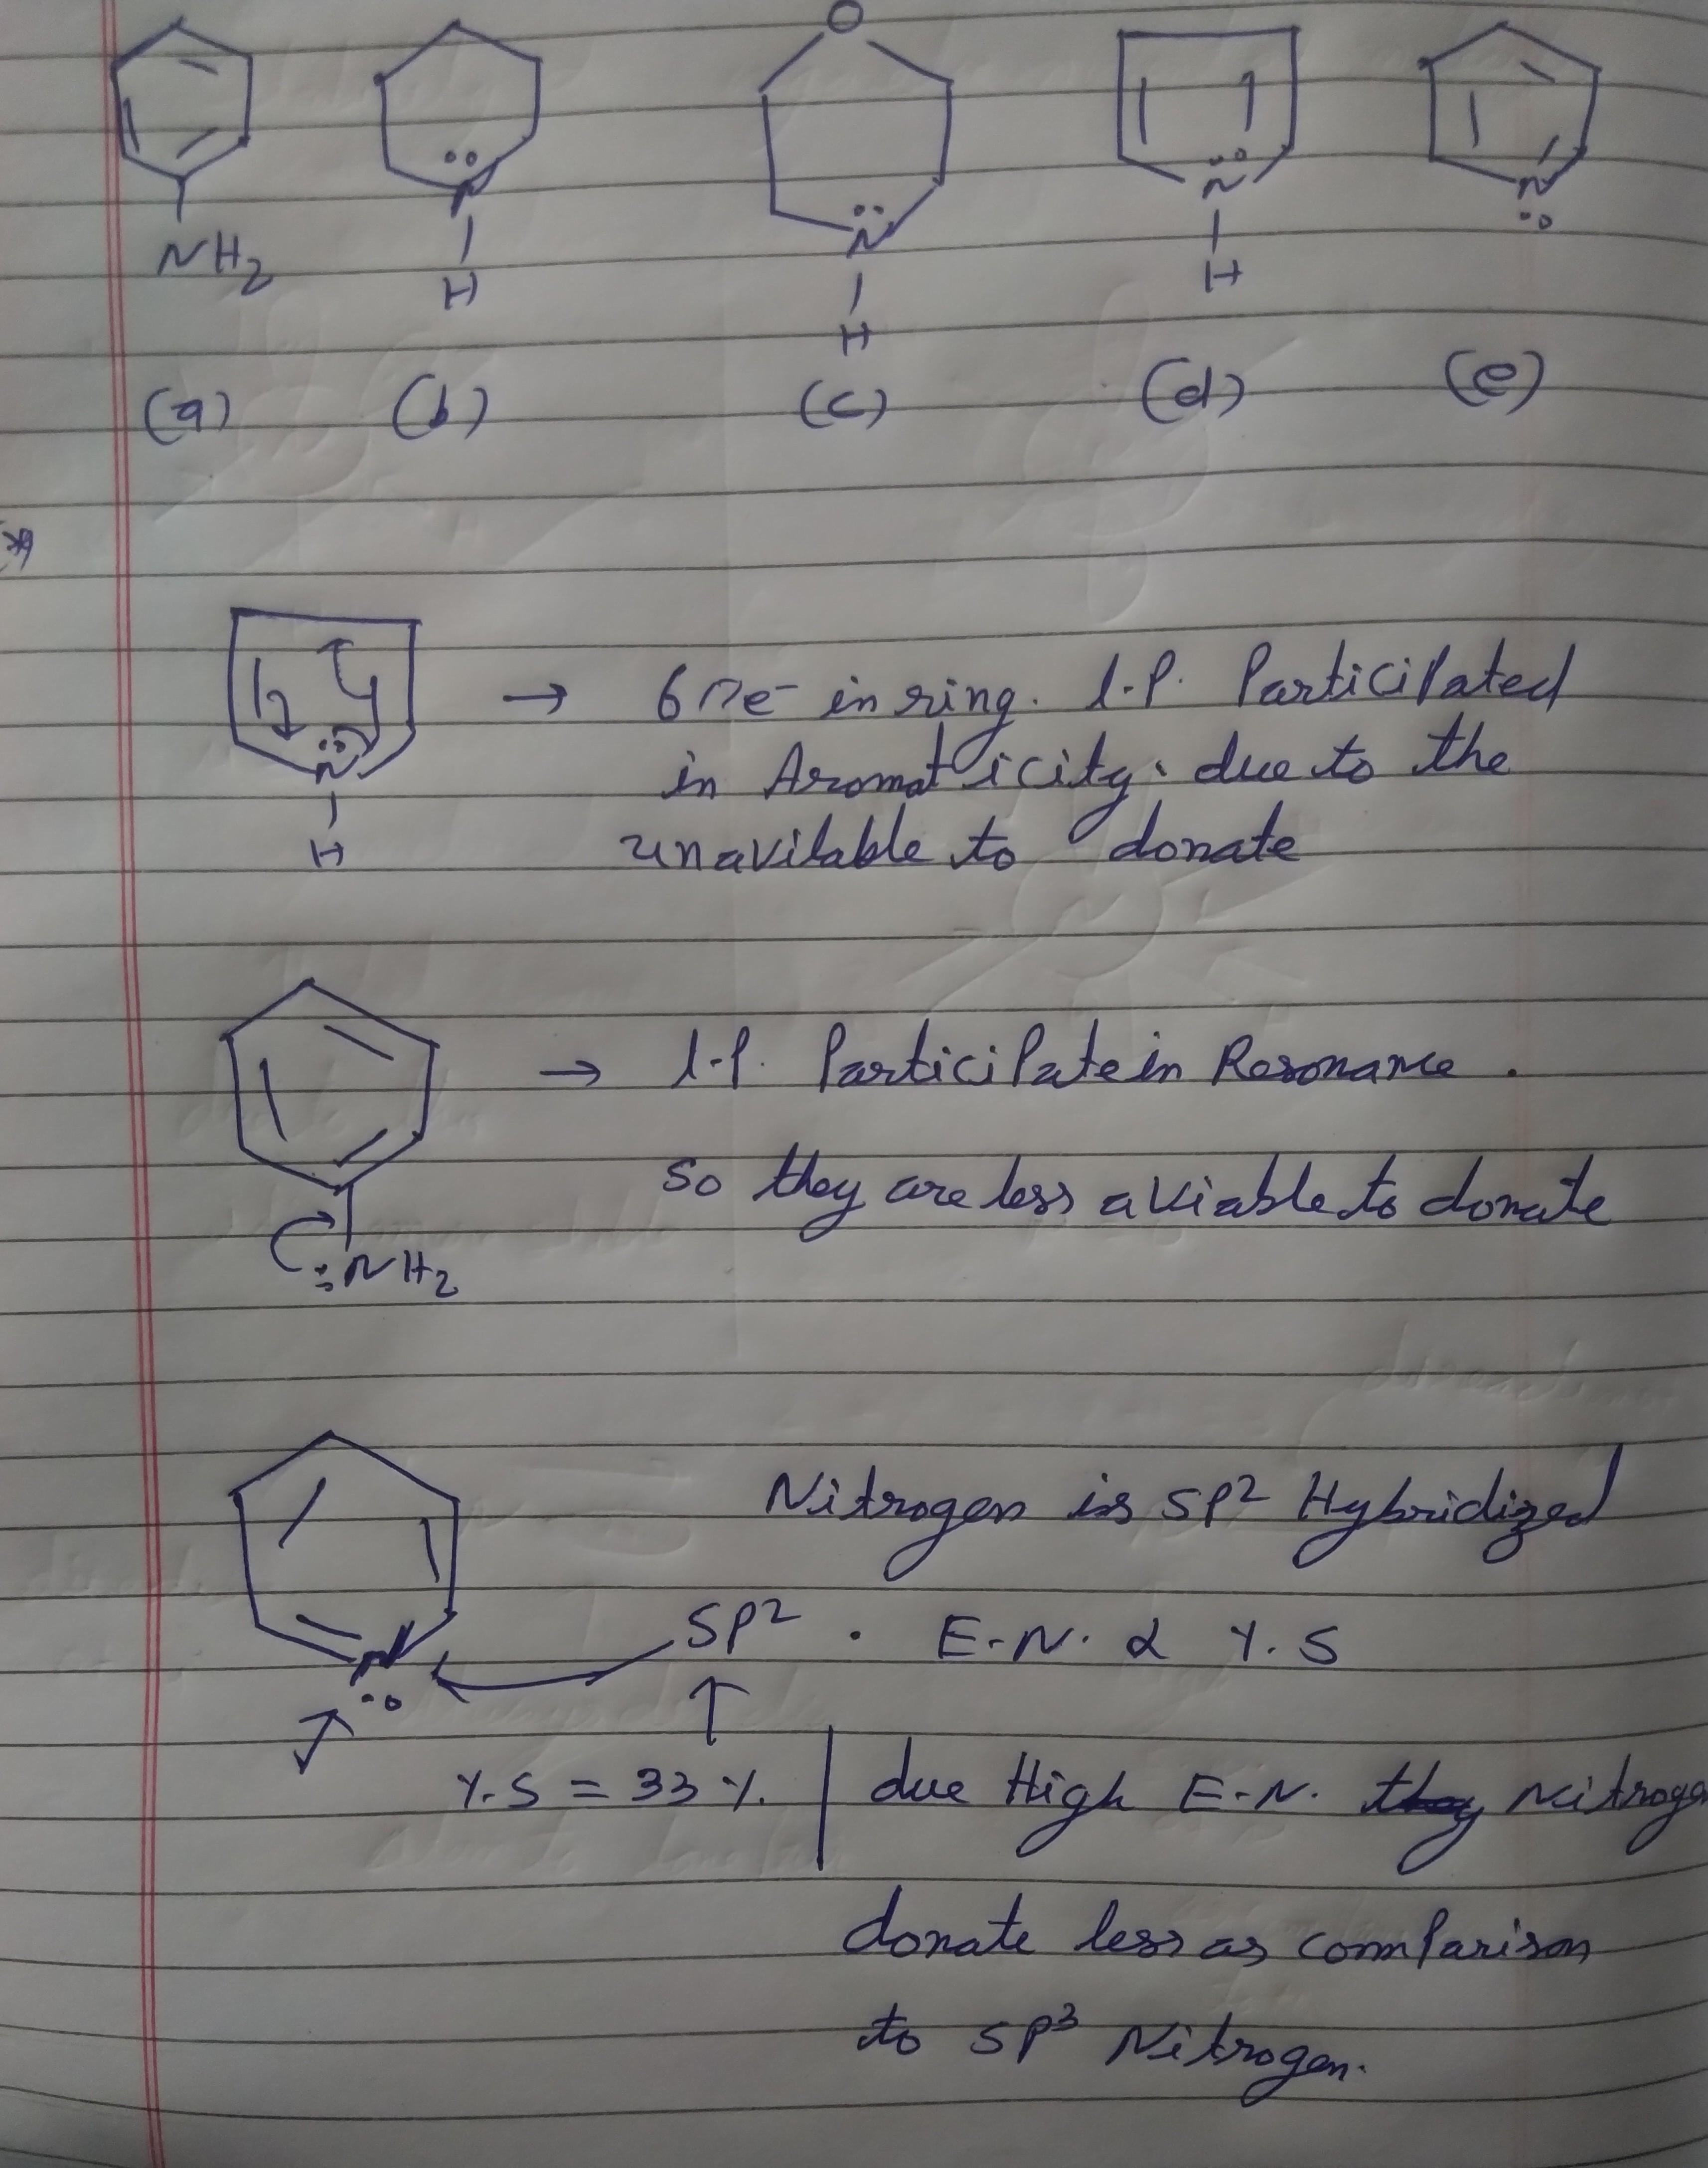 O
NH2 N N N N
H H H
(a) (b) (c) (d) (e)
N → 6πe- in ring. l.P. Participated
in Aromaticity. due to the
H unavilable to donate
→ l.P. Participate in Resonance.
so they are less aviable to donate
:NH2
Nitrogen is SP2 Hybridized
N SP2 . E.N. α %.S
%.S = 33 %. | due High E.N. Nitrogen
donate less as comparison
to SP3 Nitrogen.